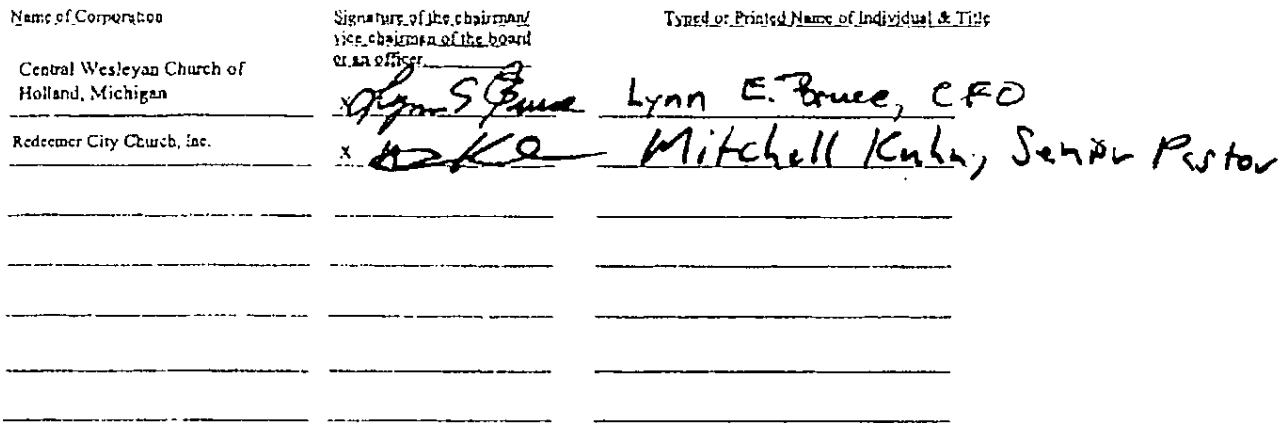 Name of Corporation
Signature of the chairman/
vice chairman of the board
or an officer
Typed or Printed Name of Individual & Title
Central Wesleyan Church of
Holland, Michigan
X Lynn E. Bruce, CFO
Redeemer City Church, Inc.
X Mitchell Kuhn, Senior Pastor